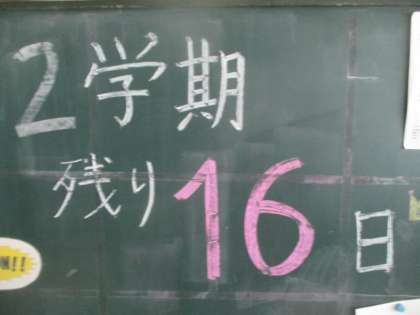 2学期
残り16日